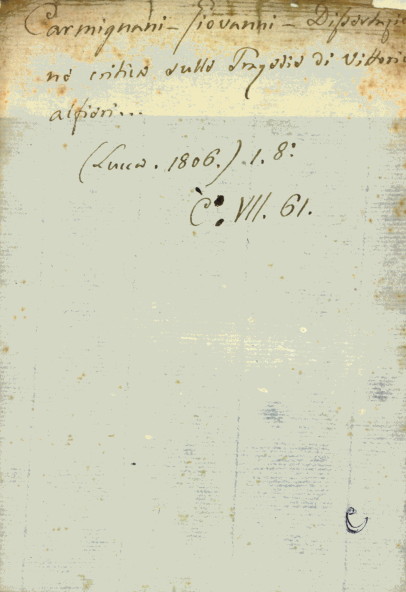 Carmignani - Giovanni - Dissertazio
ne critica sulle Tragedie di Vittorio
alfieri...
(Lucca. 1806.) 1. 8:
C. VII. 61.